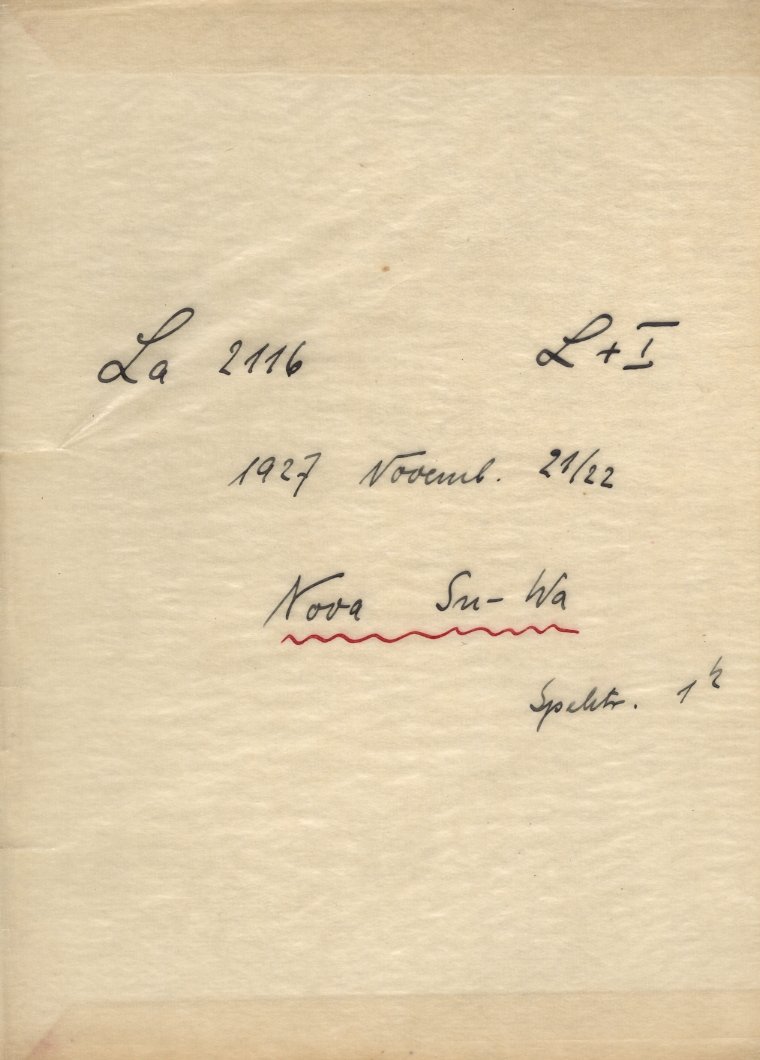 La 2116 L+I
1927 Novemb. 21/22
Nova Su-Wa
Spektr. 1ʰ